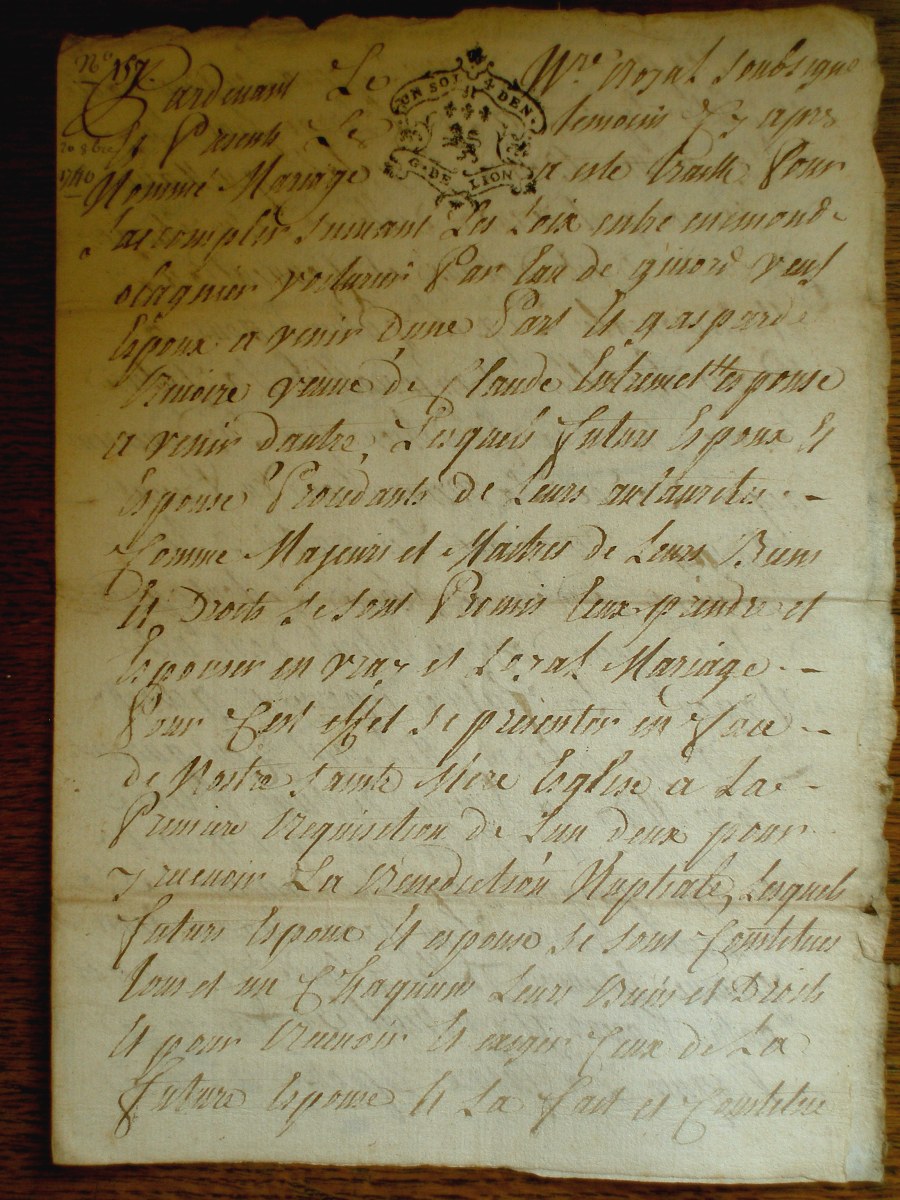 N° 157.
Pardevant Le Nre Royal Soubsigné
20 8bre
1740
Et Presents Les temoins Cy apres
Nommé Mariage a este traitté Pour
Saccomplir Suivant Les Loix entre enemond
olagnier voiturier Par Eau de givord veuf
Espoux a venir d'une Part Et gasparde
veuve de Claude Espouse
a venir d'autre, Lesquels futurs Espoux Et
Espouse Procedants de Leurs authorités
Comme Majeurs et Maitres de Leurs Biens
Et Droits se sont Promis Ceux prendre et
Espouser en vray et Loyal Mariage
Pour Cest effet se presenter en face
de Nostre Sainte Mere Eglise a La
Premiere Requisition de Lun deux pour
y recevoir La Benediction Nuptiale, Lesquels
futurs Espoux Et espouse se sont Constitues
tous et un Chaquuns Leurs Biens et Droits
Et pour Recevoir Et exiger Ceux de La
future Espouse Et La fait et Constitue
UN SOL 4 DEN.
G. DE LION